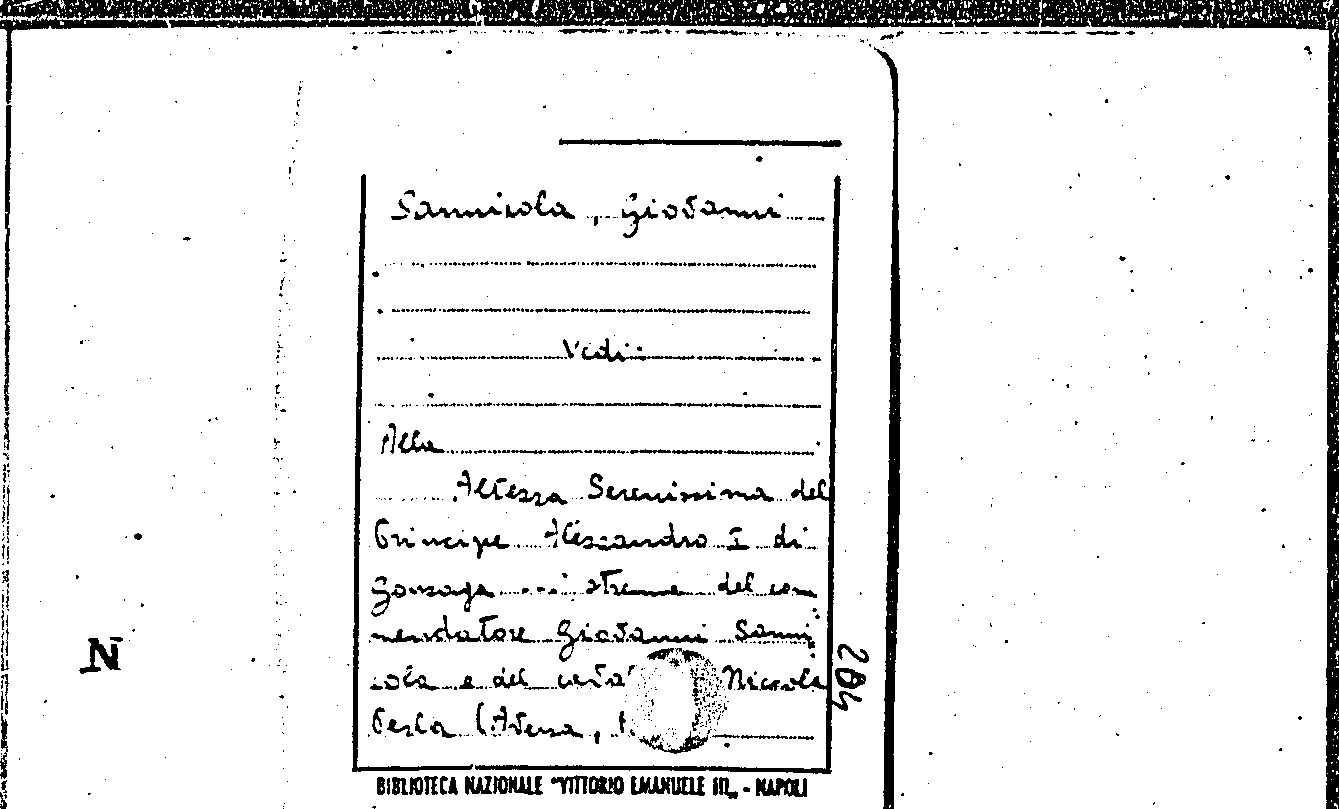 Sannicola, Giovanni
Vedi:
Alla
Altezza Serenissima del
Principe Alessandro I di
Gonzaga ... strenne del com
mendatore Giovanni Sanni
cola e del Niccola
Testa (Aversa,
204
N
BIBLIOTECA NAZIONALE "VITTORIO EMANUELE III„ - NAPOLI